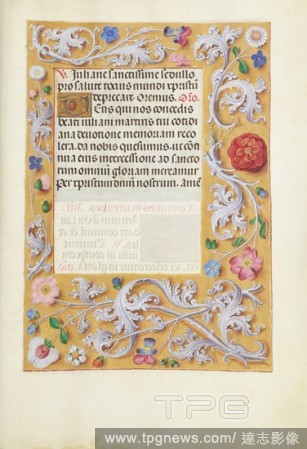 V. Iuliane sanctissime sedillo
pro salute totius mundi xpristi
deprecare. Oremus. Oro.
Deus qui nos concedis
beati iuliani martiris tui cotidi
ana devotione memoriam reco
lere. da nobis quesumus. ut con
tinua eius intercessione ad sancto
rum omniū gloriam mereamur
per xpristum dnm̄ nostrum. Amē
TPG
www.tpgnews.com/ 達志影像